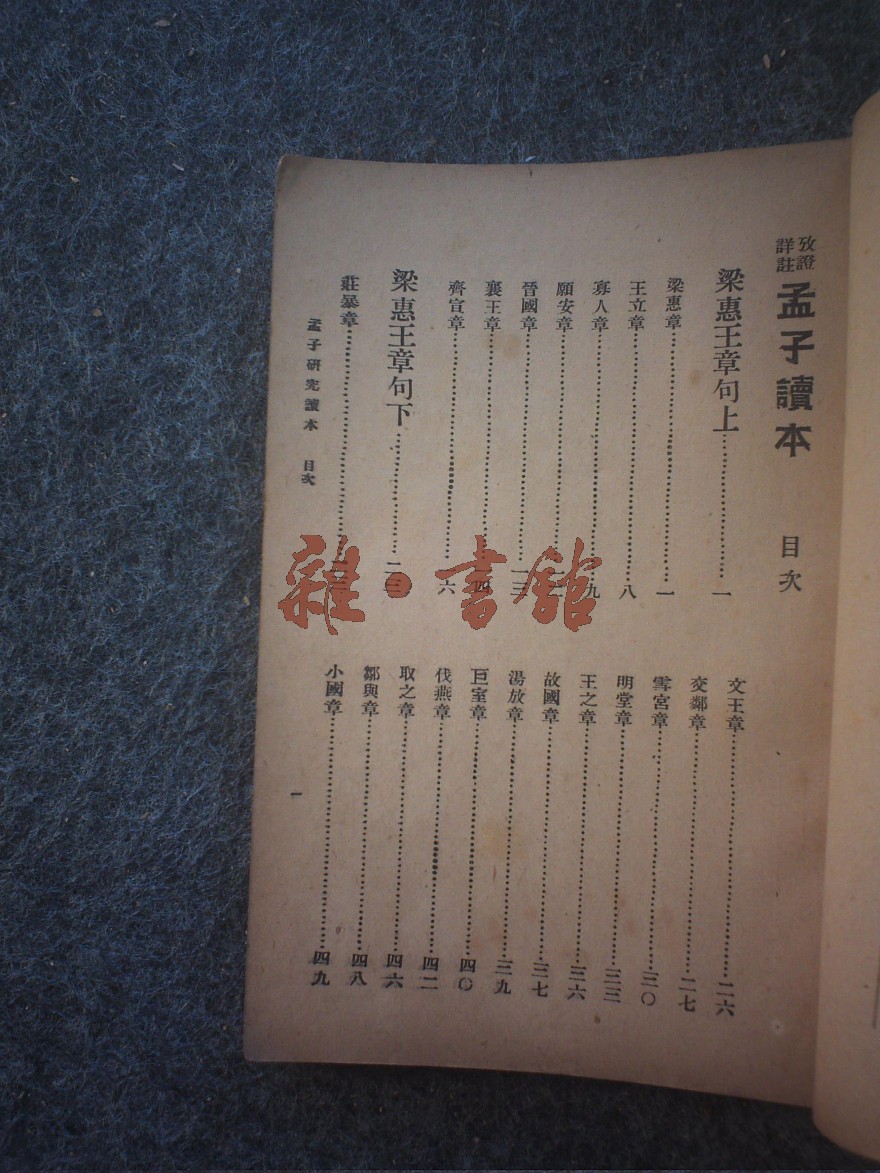 攷證
詳註
孟子讀本 目次
梁惠王章句上…………一
梁惠章…………一
王立章…………八
寡人章…………九
願安章…………
晉國章…………一三
襄王章…………
齊宣章…………
梁惠王章句下…………
莊暴章…………
文王章…………二六
交鄰章…………二七
雪宮章…………三〇
明堂章…………三三
王之章…………三六
故國章…………三七
湯放章…………三九
巨室章…………四〇
伐燕章…………四二
取之章…………四六
鄒與章…………四八
小國章…………四九
孟子研究讀本 目次
一
雜·書館